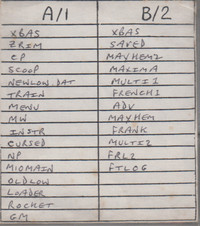 A/1 B/2
XBAS XBAS
ZRIM SAVED
CP MAYHEM2
SCOOP MAXIMA
NEWLOW.DAT MULTI1
TRAIN FRENCH1
MENU ADV
MW MAYHEM
INSTR FRANK
CURSED MULTI2
NP FRL2
MIOMAIN FTLOG
OLDLOW
LOADER
ROCKET
GM